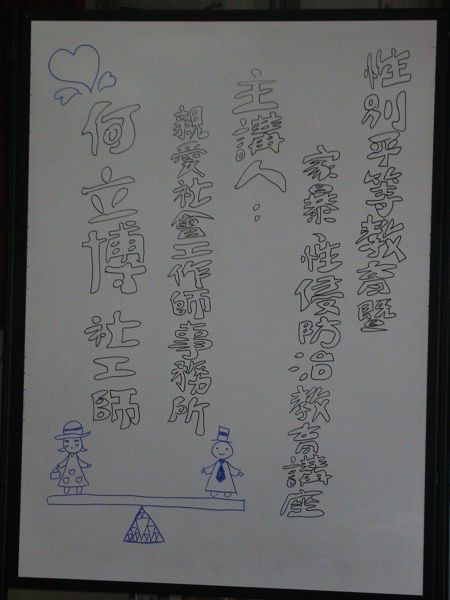 性別平等教育暨
家暴、性侵防治教育講座
主講人：
親愛社會工作師事務所
何立博 社工師